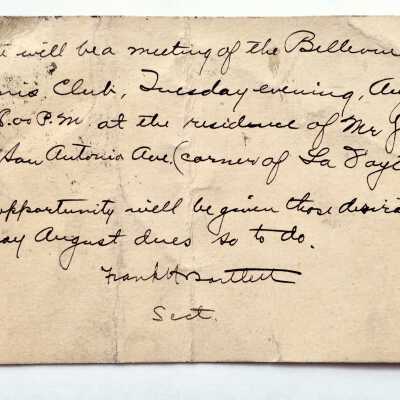 will be a meeting of the Bellevue
Club, Tuesday evening, Au
8.00 P.M. at the residence of Mr G
San Antonio Ave. (corner of La Faye
opportunity will be given those desir
ay August dues so to do.
Frank H Bartlett
Sect.